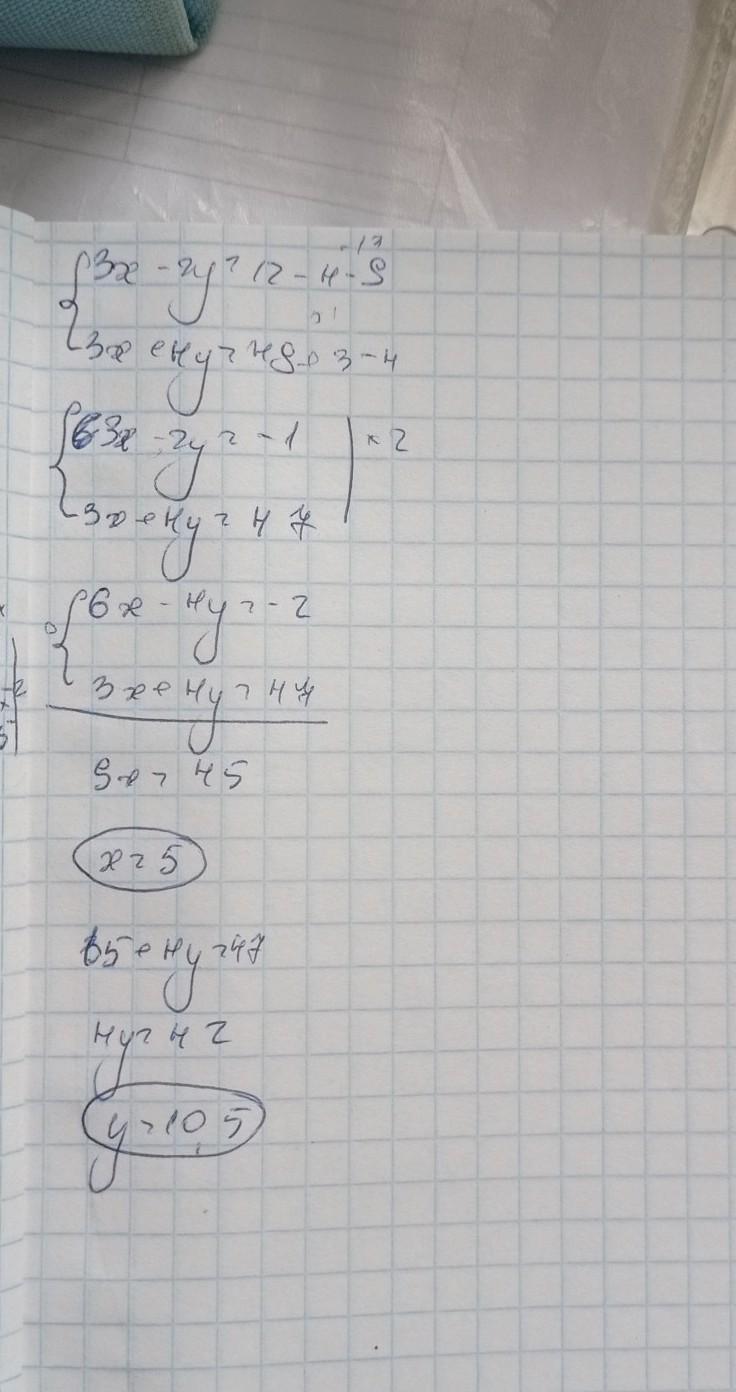 -13
3x - 2y = 12 - 4 - 9
3x + 4y = 48 + 3 - 4
63x - 2y = -1 | × 2
3x + 4y = 47
6x - 4y = -2
3x + 4y = 47
9x = 45
x = 5
15 + 4y = 47
4y = 42
y = 10,5